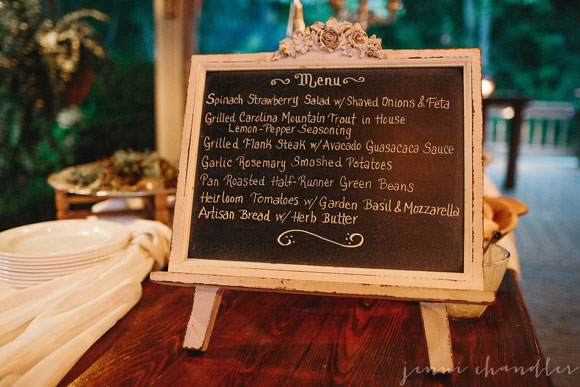 Menu
Spinach Strawberry Salad w/ Shaved Onions & Feta
Grilled Carolina Mountain Trout in House
Lemon-Pepper Seasoning
Grilled Flank Steak w/ Avacado Guasacaca Sauce
Garlic Rosemary Smashed Potatoes
Pan Roasted Half-Runner Green Beans
Heirloom Tomatoes w/ Garden Basil & Mozzarella
Artisan Bread w/ Herb Butter
jenni chandler